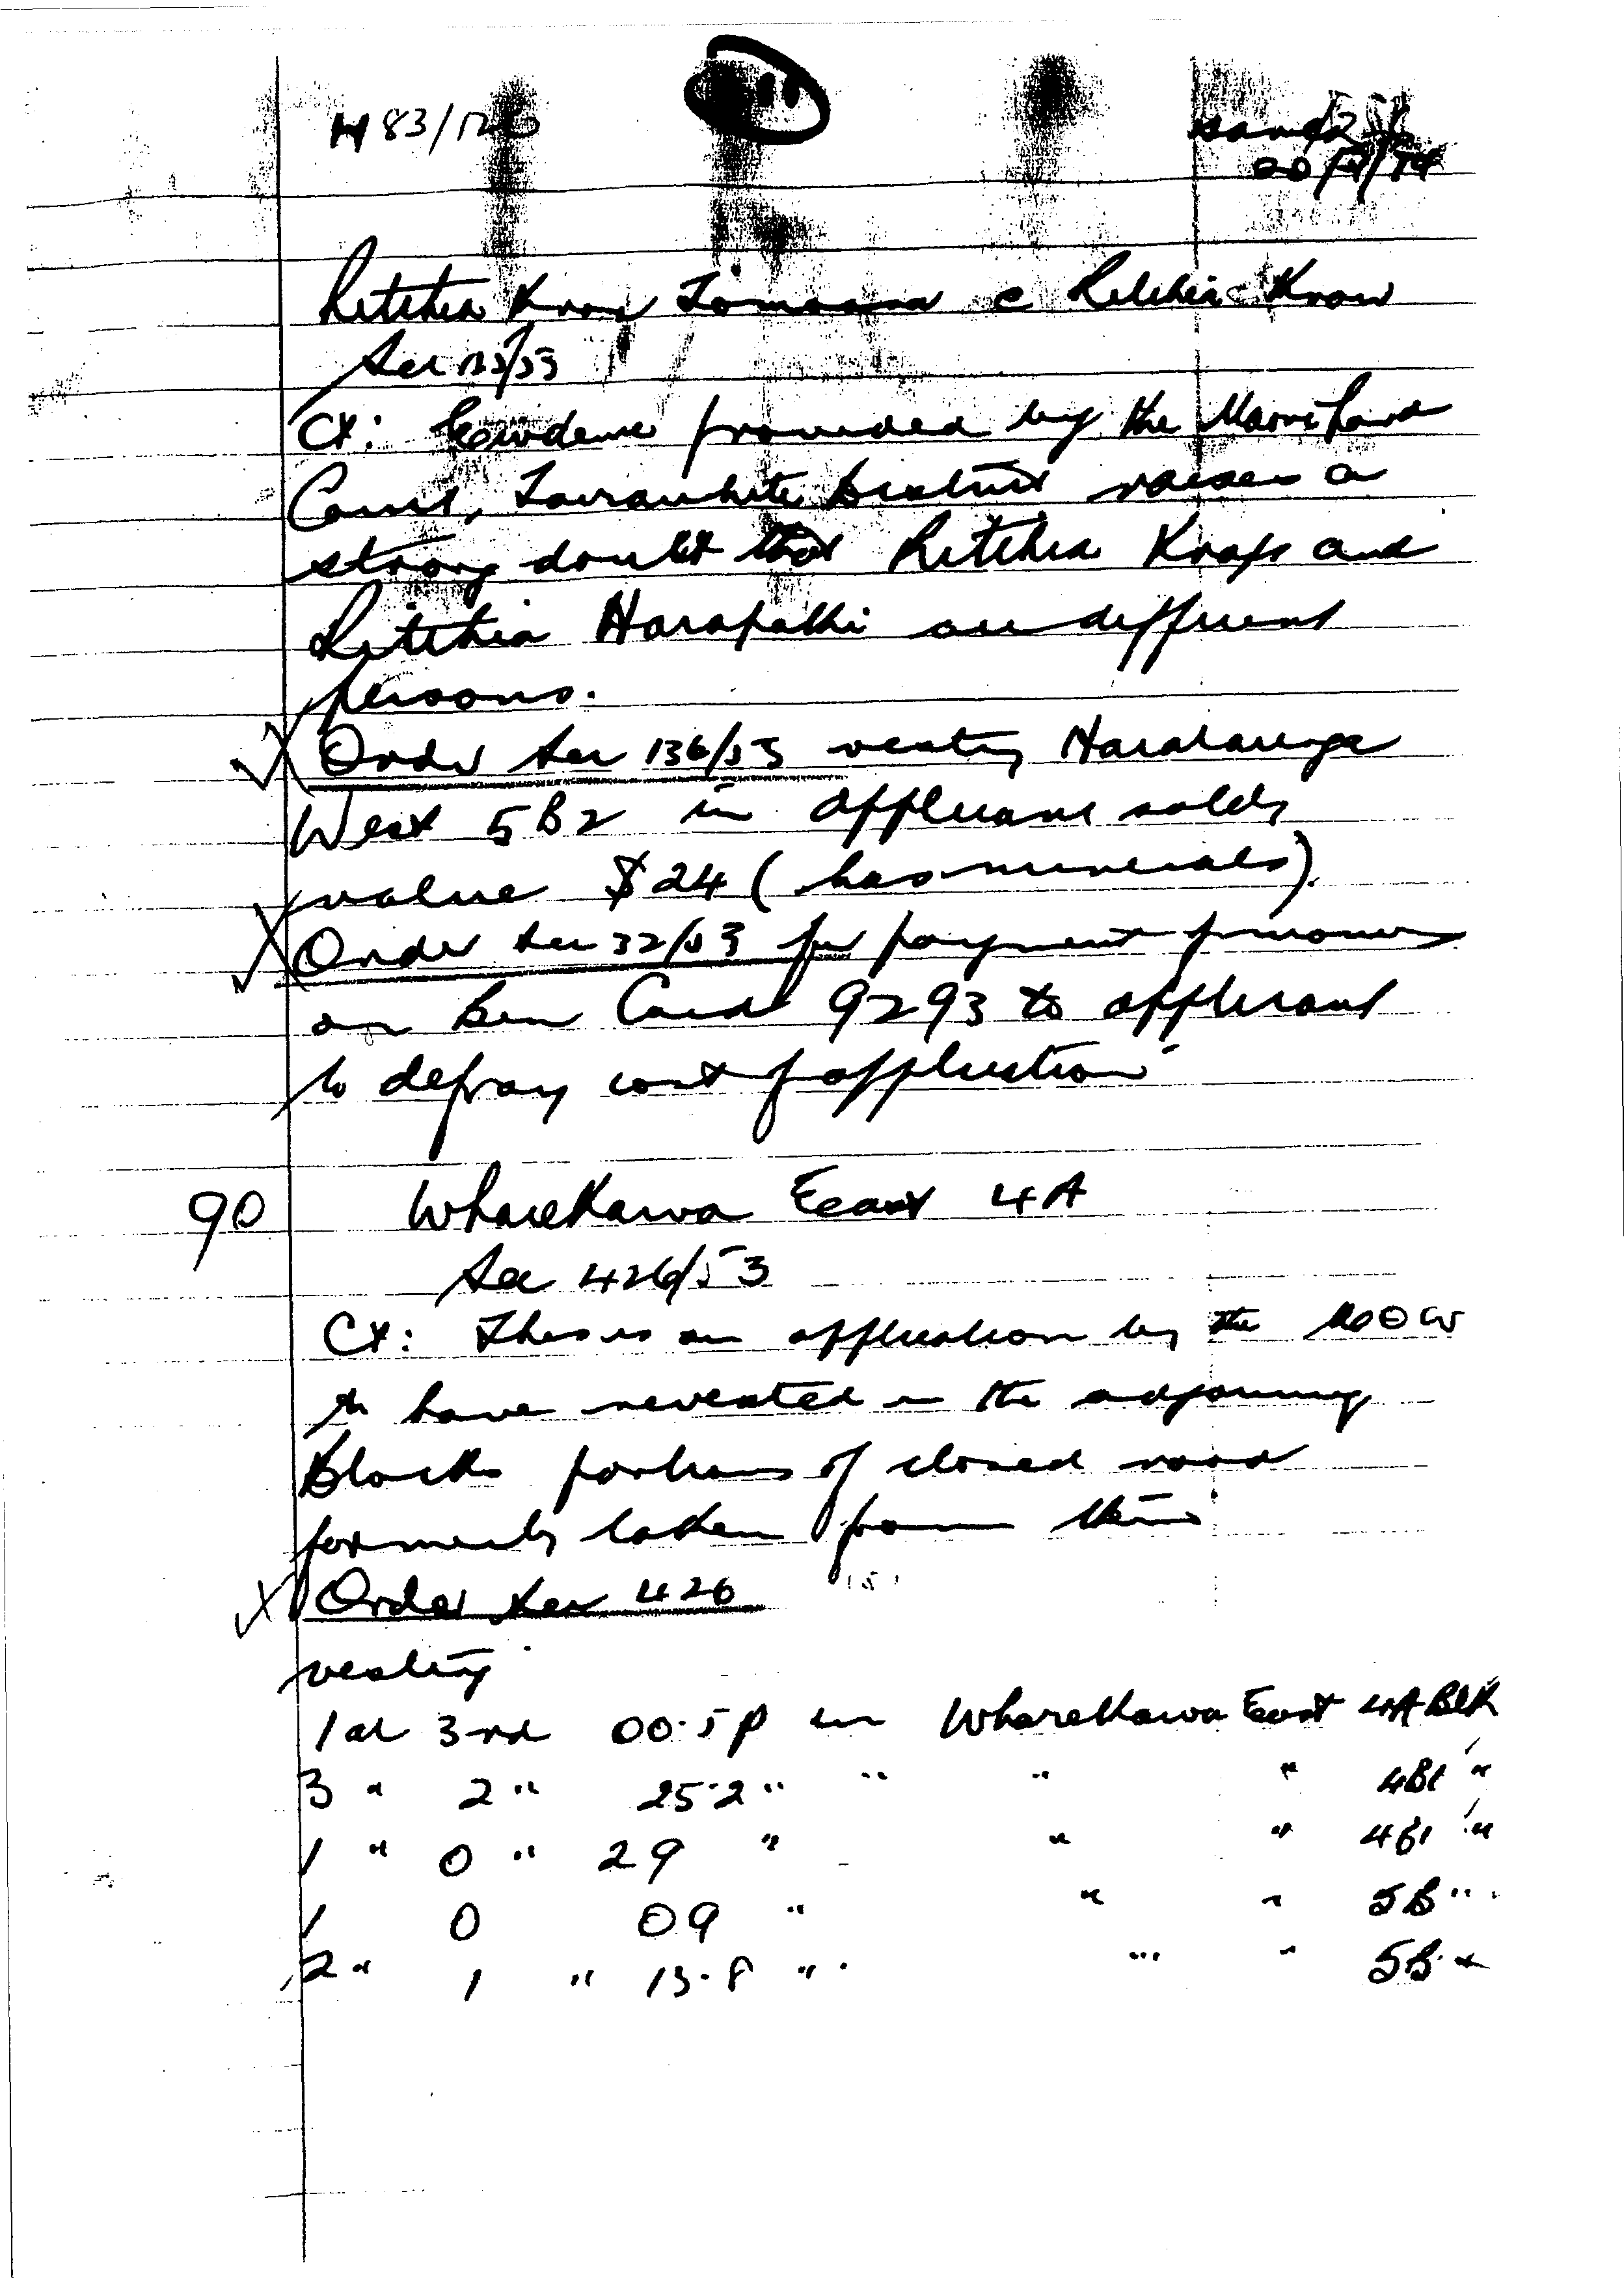 H 83/120
11
20/
Ritihia Knox Tomoana c Ritihia Knox
Sec 135/53
Ct: Evidence provided by the Maori Land
Court, Tairawhiti District raises a
strong doubt that Ritihia Knox and
Ritihia Harapathi are different
persons.
Order sec 136/53 vesting Harataunga
West 5B2 in applicant solely
value $24 (has minerals).
Order sec 32/53 for payment of moneys
on Ben Card 9293 to applicant
to defray cost of application
90 Wharekawa East 4A
Sec 426/53
Ct: This is an application by the MOW
to have revested in the adjoining
Blocks portions of closed road
formerly taken from them
Order sec 426
vesting
1 ac 3 rd 00.5 p in Wharekawa East 4A Blk
3 " 2 " 25.2 " " " " 4B1 "
1 " 0 " 29 " " " 4B1 "
1 0 09 " " " 5B "
2 " 1 " 13.8 " " " 5B "